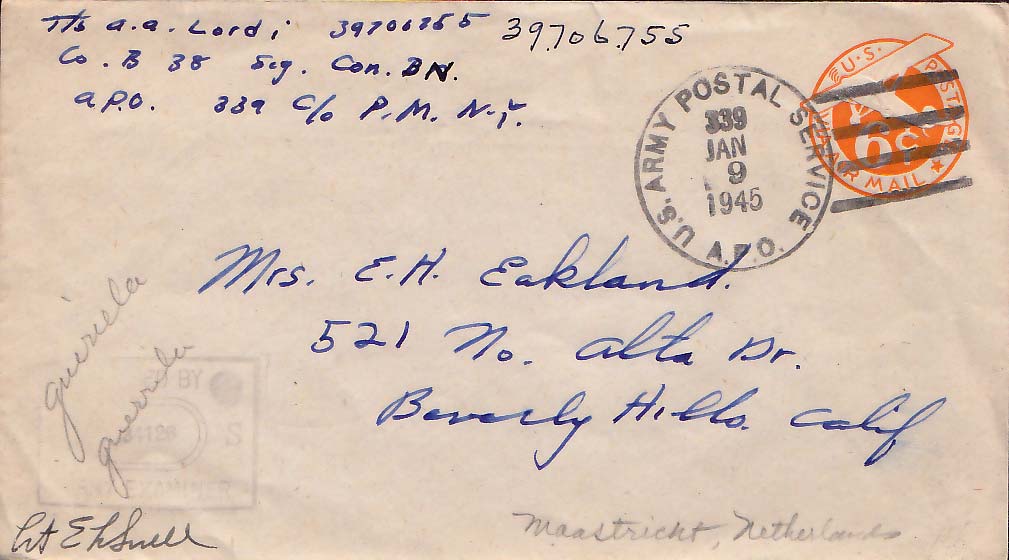 T/5 a.a. Lordi 39706755 39706755
Co. B 38 Sig. Con. BN.
a.P.O. 339 C/o P.M. N.Y.
U.S. ARMY POSTAL SERVICE
339
JAN
9
1945
A.P.O.
U.S. POSTAGE
6¢
AIR MAIL
Mrs. E.H. Eakland.
521 No. Alta Dr.
Beverly Hills. Calif
guriela
guerrila
BY
34126 S
ARMY EXAMINER
Lt
Maastricht, Netherlands